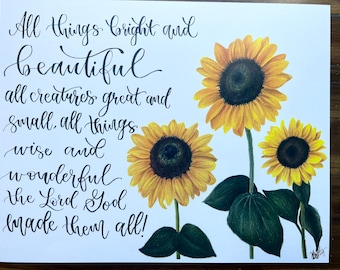 All things bright and
beautiful
all creatures great and
small, all things
wise and
wonderful
the Lord God
made them all!